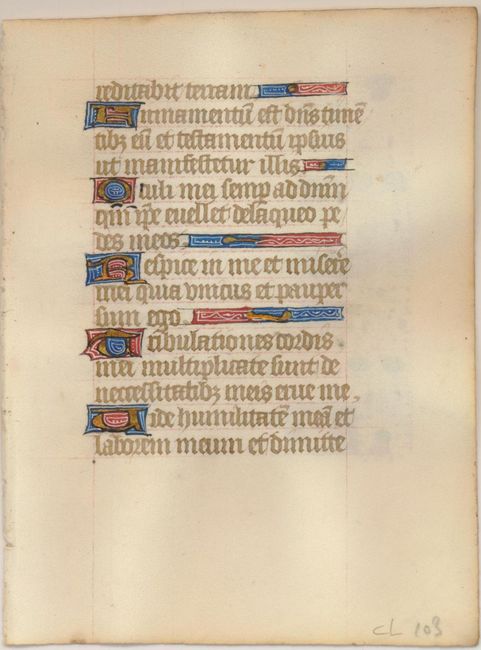 reditabit terram
Firmamentū est dn̄s timē
tibꝫ eū et testamentū ipsius
ut manifestetur illis
Oculi mei semp ad dnm̄
qm̄ ipē euellet de laqueo pe
des meos
Respice in me et miserē
mei quia vnicus et pauper
sum ego
Tribulationes cordis
mei multiplicate sunt de
necessitatibꝫ meis erue me
Vide humilitatē meā et
laborem meum et dimitte
CL 103